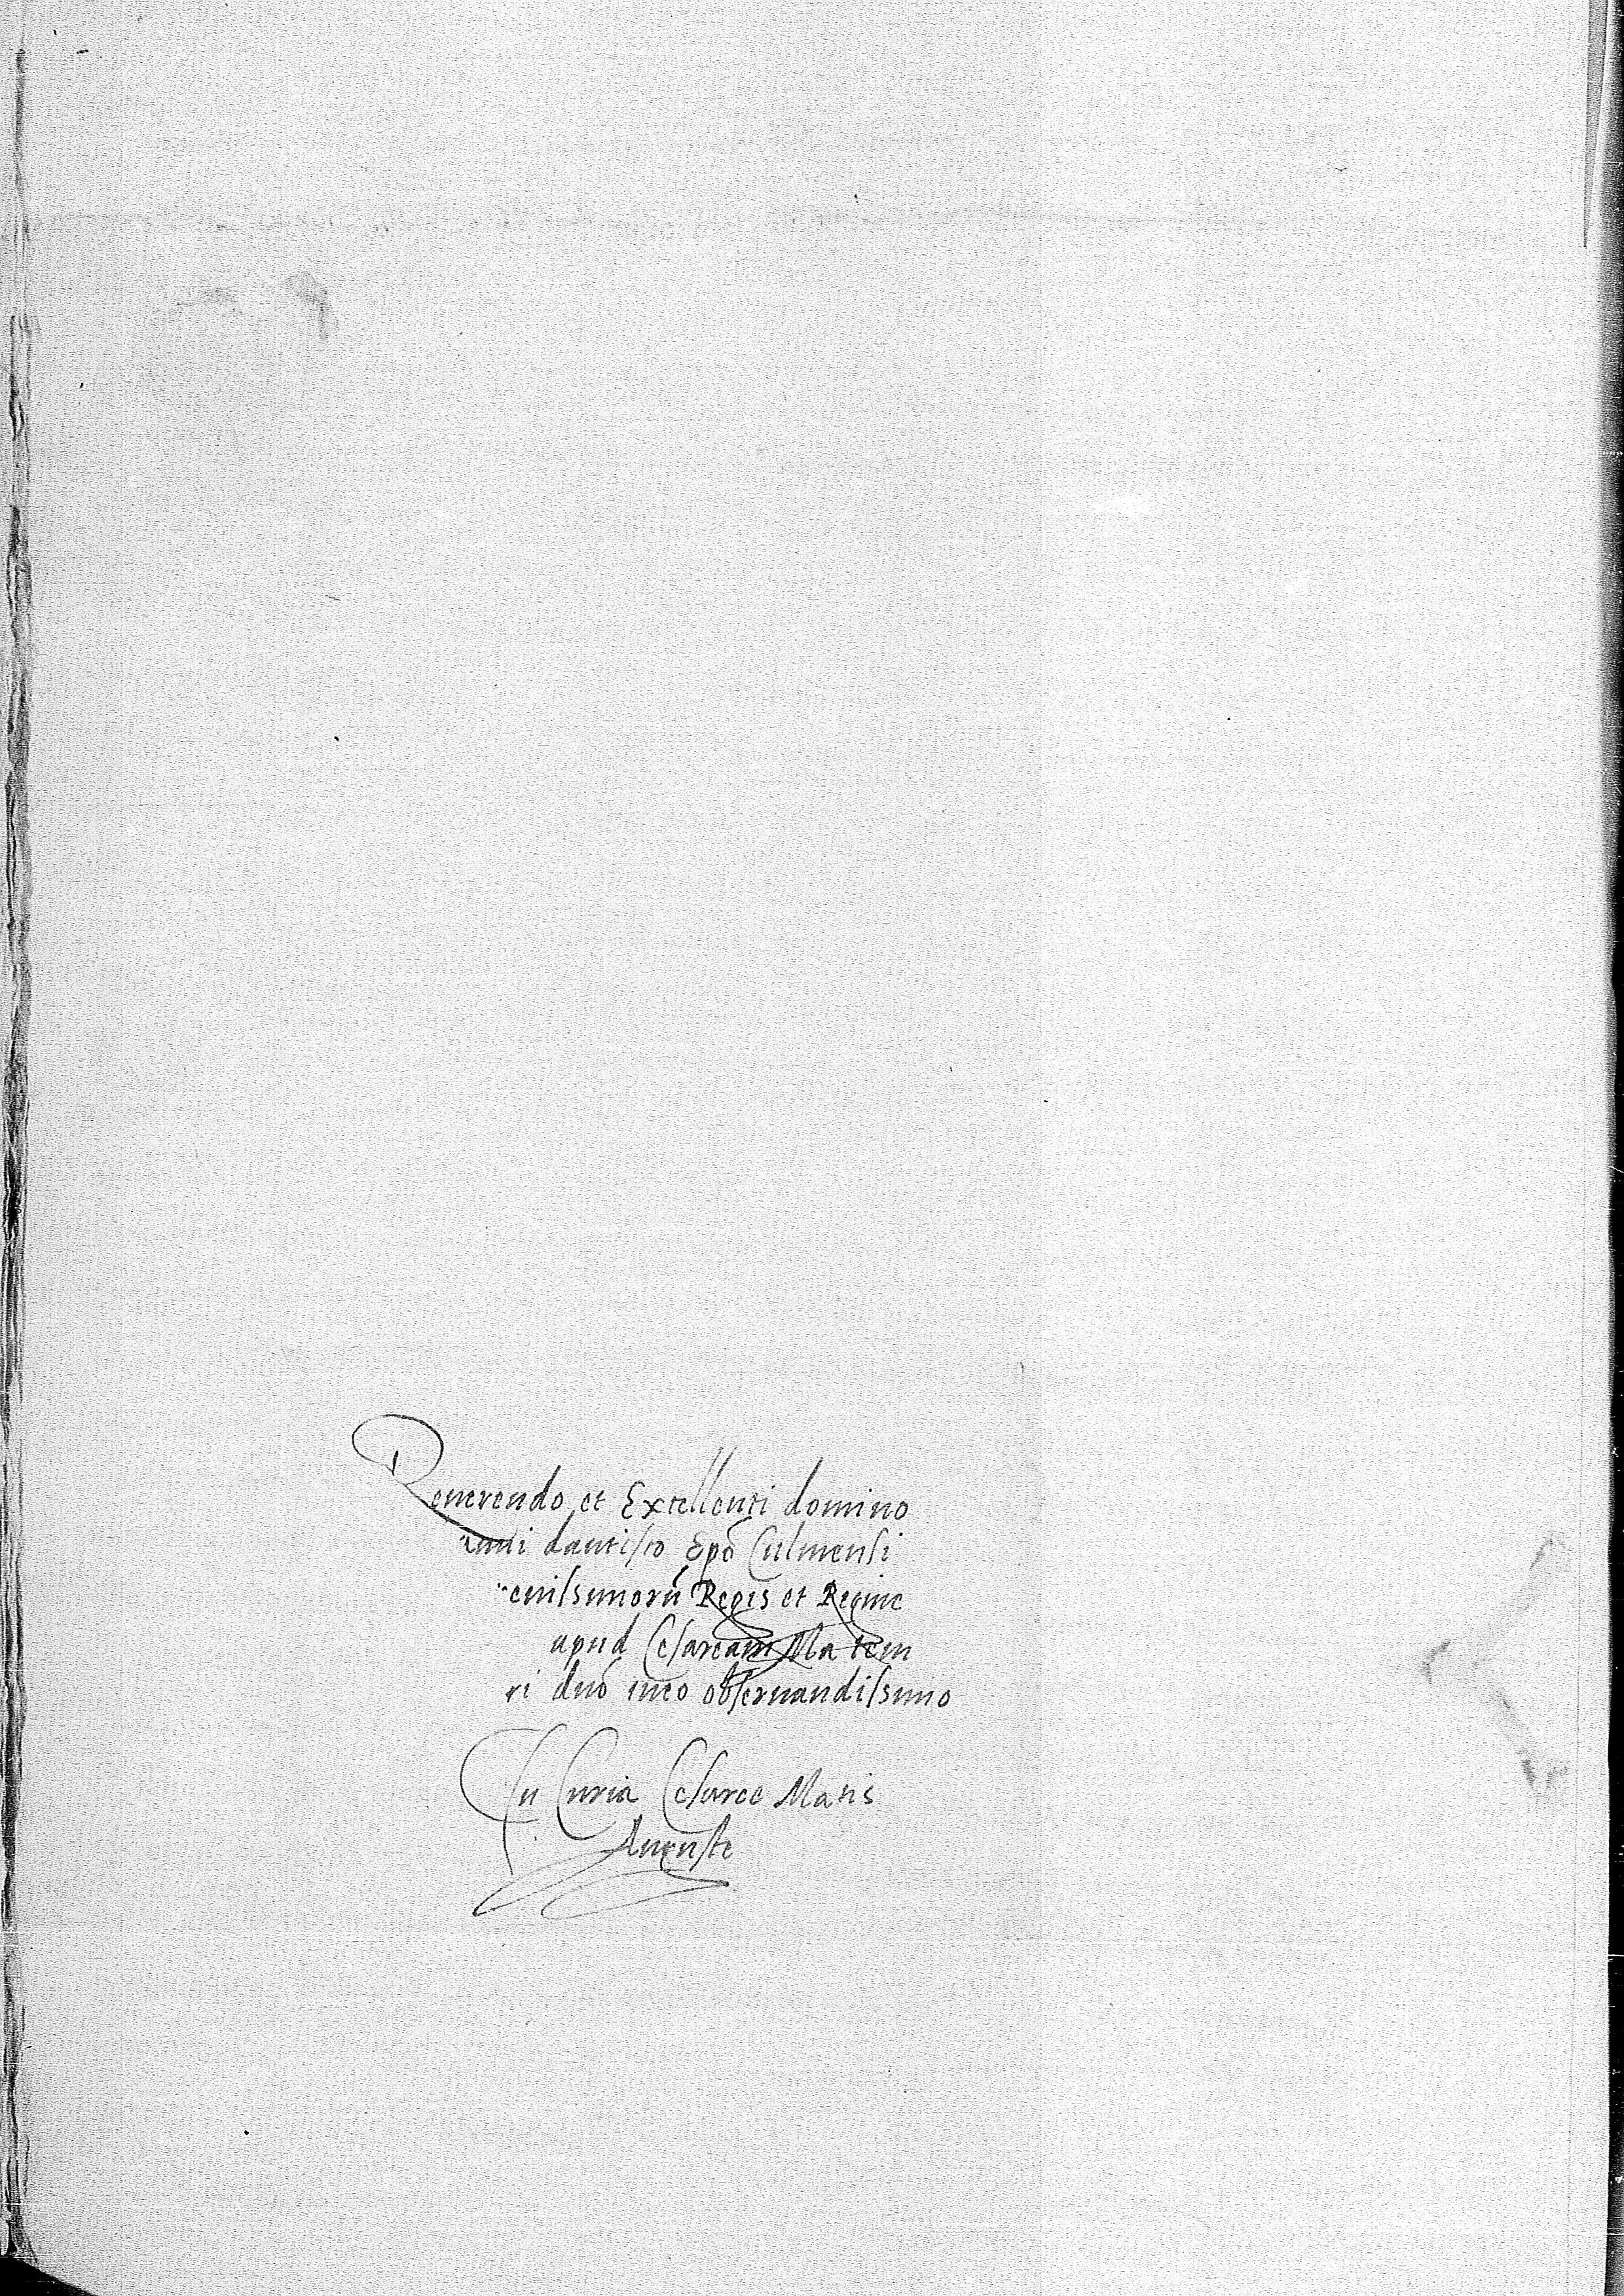 Reuerendo et Excellenti domino
anni dantisco Epō Culmensi
enissimorū Regis et Regine
apud Cesaream Ma tem
ri dnō meo obseruandissimo
In Curia Cesaree Matis
Auguste